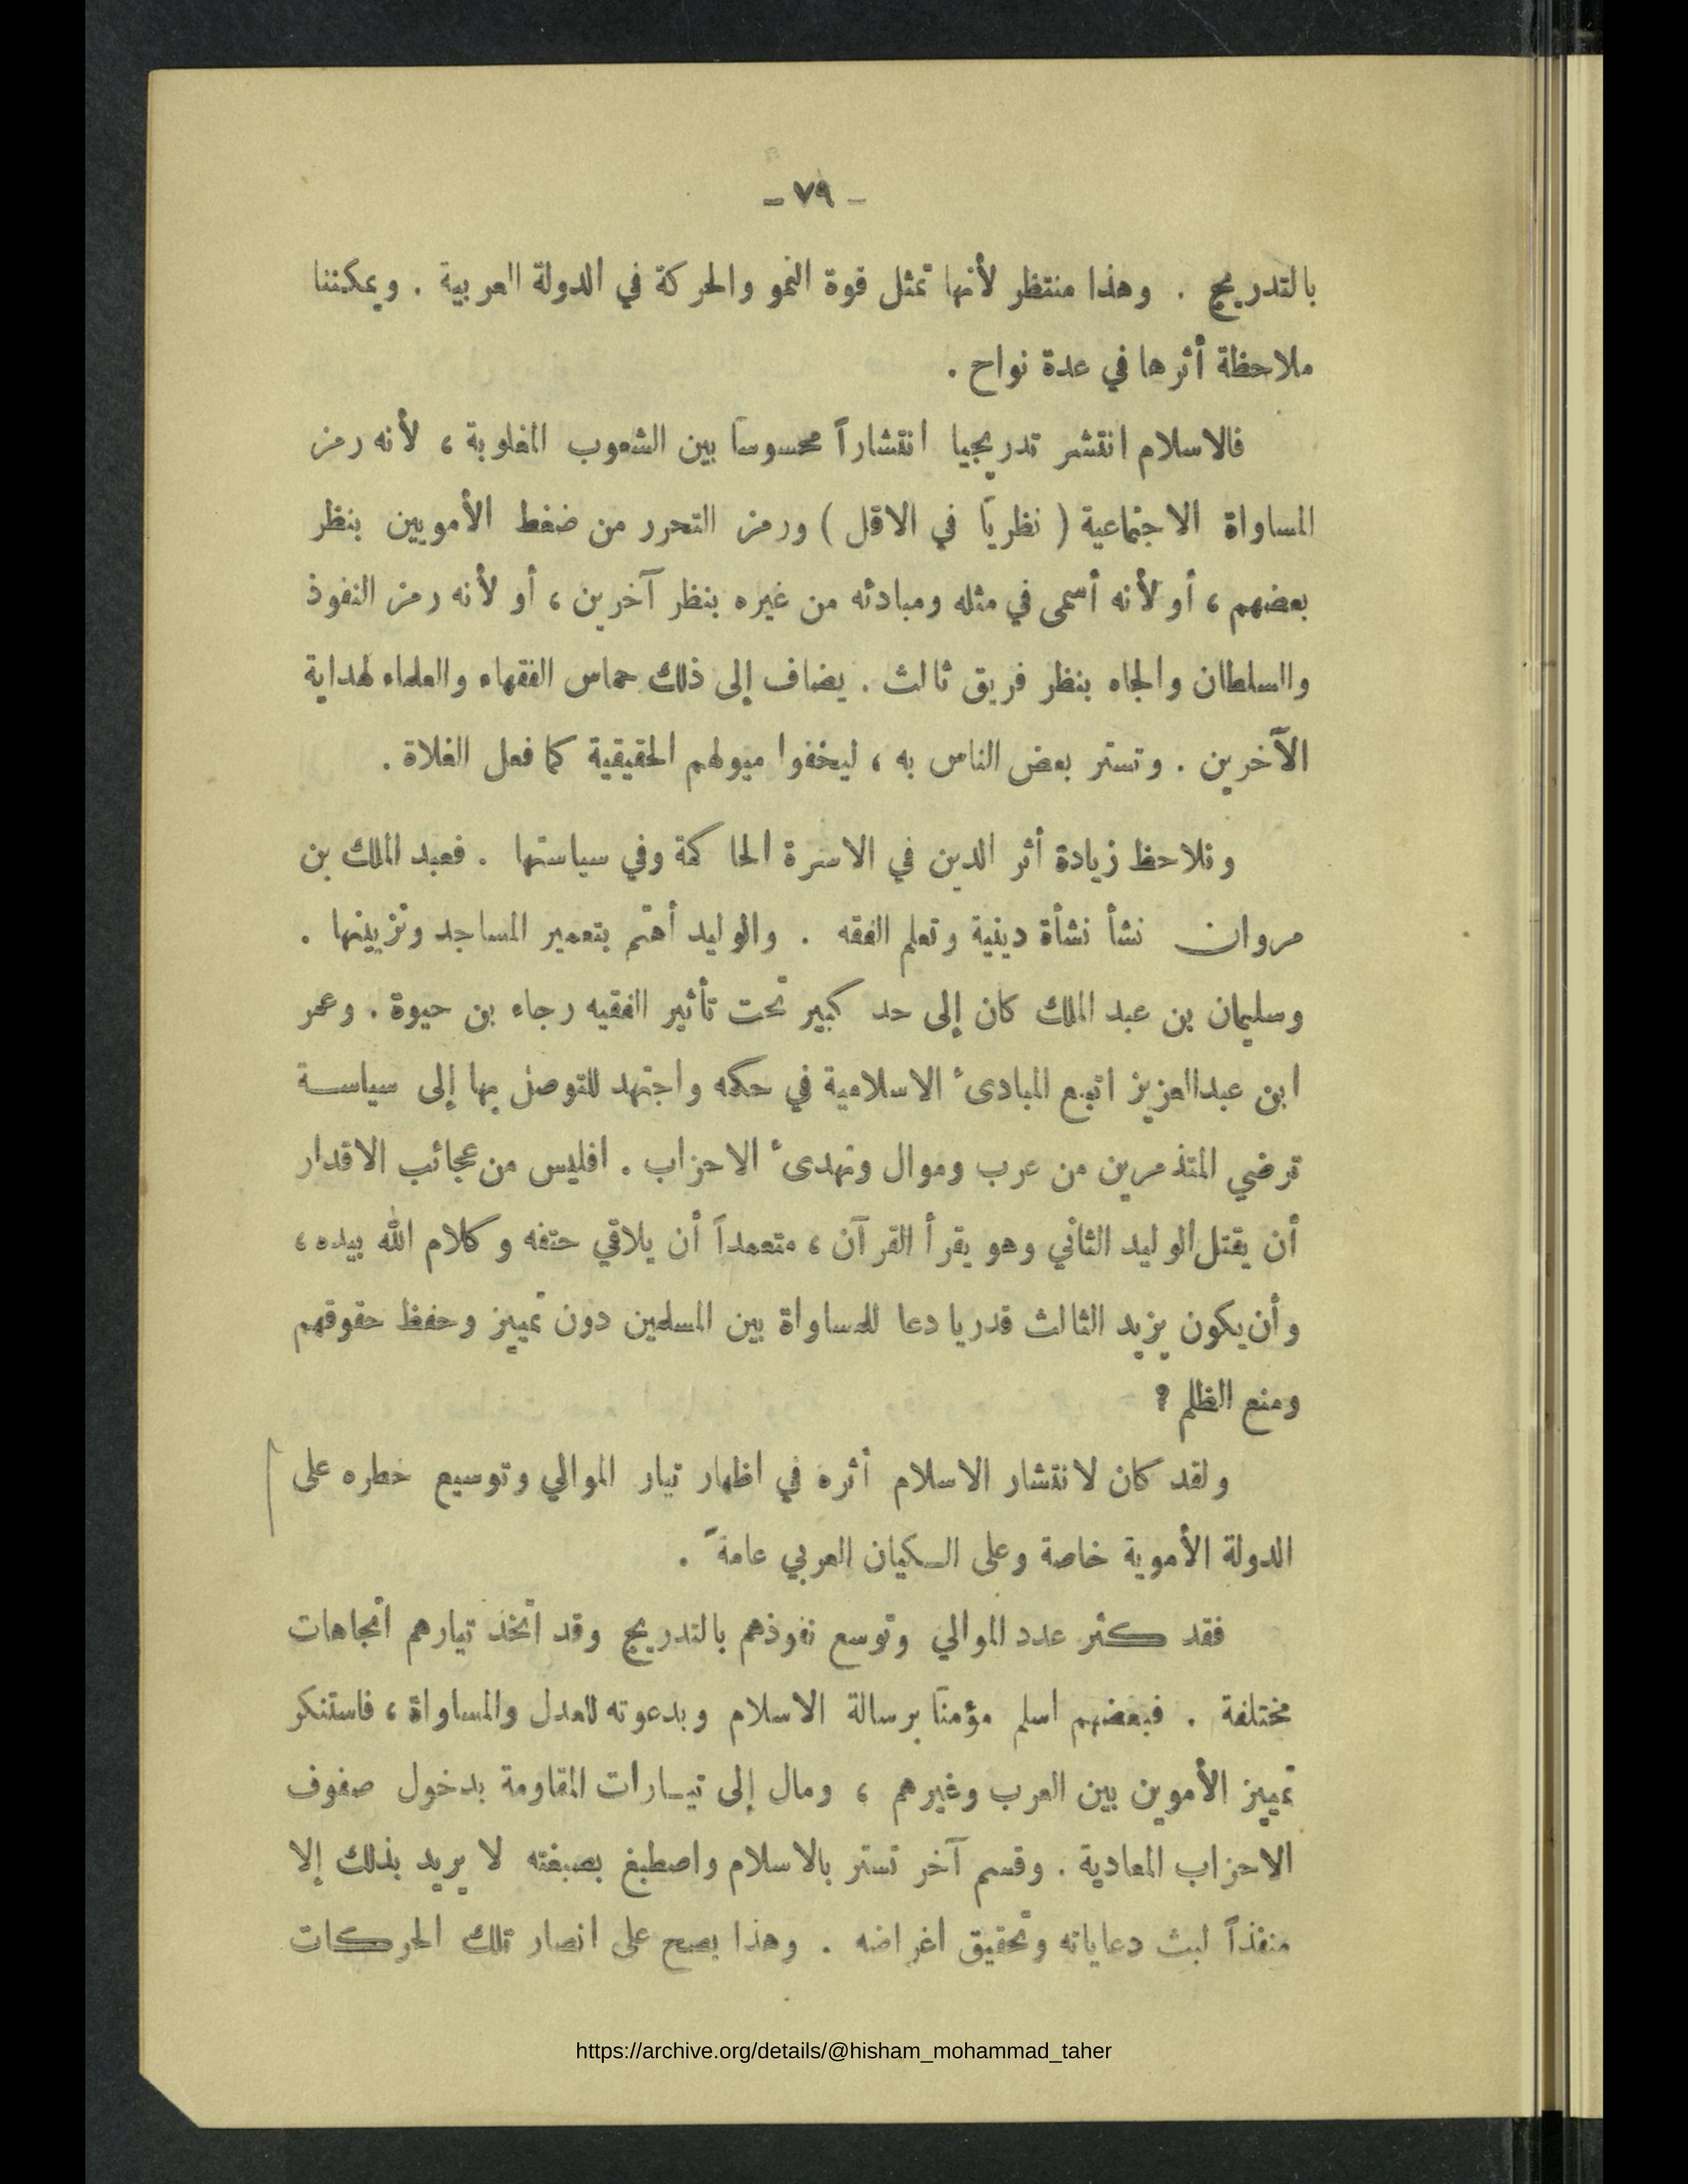 ـ ٧٩ ـ
بالتدريج . وهذا منتظر لأنها تمثل قوة النمو والحركة في الدولة العربية . ويمكننا
ملاحظة أثرها في عدة نواح .
فالاسلام انتشر تدريجيا انتشاراً محسوساً بين الشعوب المغلوبة ، لأنه رمز
المساواة الاجتماعية ( نظرياً في الاقل ) ورمز التحرر من ضغط الأمويين بنظر
بعضهم ، أو لأنه أسمى في مثله ومبادئه من غيره بنظر آخرين ، أو لأنه رمز النفوذ
والسلطان والجاه بنظر فريق ثالث . يضاف إلى ذلك حماس الفقهاء والعلماء لهداية
الآخرين . وتستر بعض الناس به ، ليخفوا ميولهم الحقيقية كما فعل الغلاة .
ونلاحظ زيادة أثر الدين في الاسرة الحاكمة وفي سياستها . فعبد الملك بن
مروان نشأ نشأة دينية وتعلم الفقه . والوليد أهتم بتعمير المساجد وتزيينها .
وسليمان بن عبد الملك كان إلى حد كبير تحت تأثير الفقيه رجاء بن حيوة . وعمر
ابن عبدالعزيز اتبع المبادىء الاسلامية في حكمه واجتهد للتوصل بها إلى سياسة
ترضي المتذمرين من عرب وموال وتهدىء الاحزاب . افليس من عجائب الاقدار
أن يقتل الوليد الثاني وهو يقرأ القرآن ، متعمداً أن يلاقي حتفه وكلام الله بيده ،
وأن يكون يزيد الثالث قدريا دعا للمساواة بين المسلمين دون تمييز وحفظ حقوقهم
ومنع الظلم ؟
ولقد كان لانتشار الاسلام أثره في اظهار تيار الموالي وتوسيع خطره على
الدولة الأموية خاصة وعلى الكيان العربي عامةً .
فقد كثر عدد الموالي وتوسع نفوذهم بالتدريج وقد اتخذ تيارهم اتجاهات
مختلفة . فبعضهم اسلم مؤمناً برسالة الاسلام وبدعوته للعدل والمساواة ، فاستنكر
تمييز الأموين بين العرب وغيرهم ، ومال إلى تيارات المقاومة بدخول صفوف
الاحزاب المعادية . وقسم آخر تستر بالاسلام واصطبغ بصبغته لا يريد بذلك إلا
منفذاً لبث دعاياته وتحقيق اغراضه . وهذا يصح على انصار تلك الحركات
https://archive.org/details/@hisham_mohammad_taher